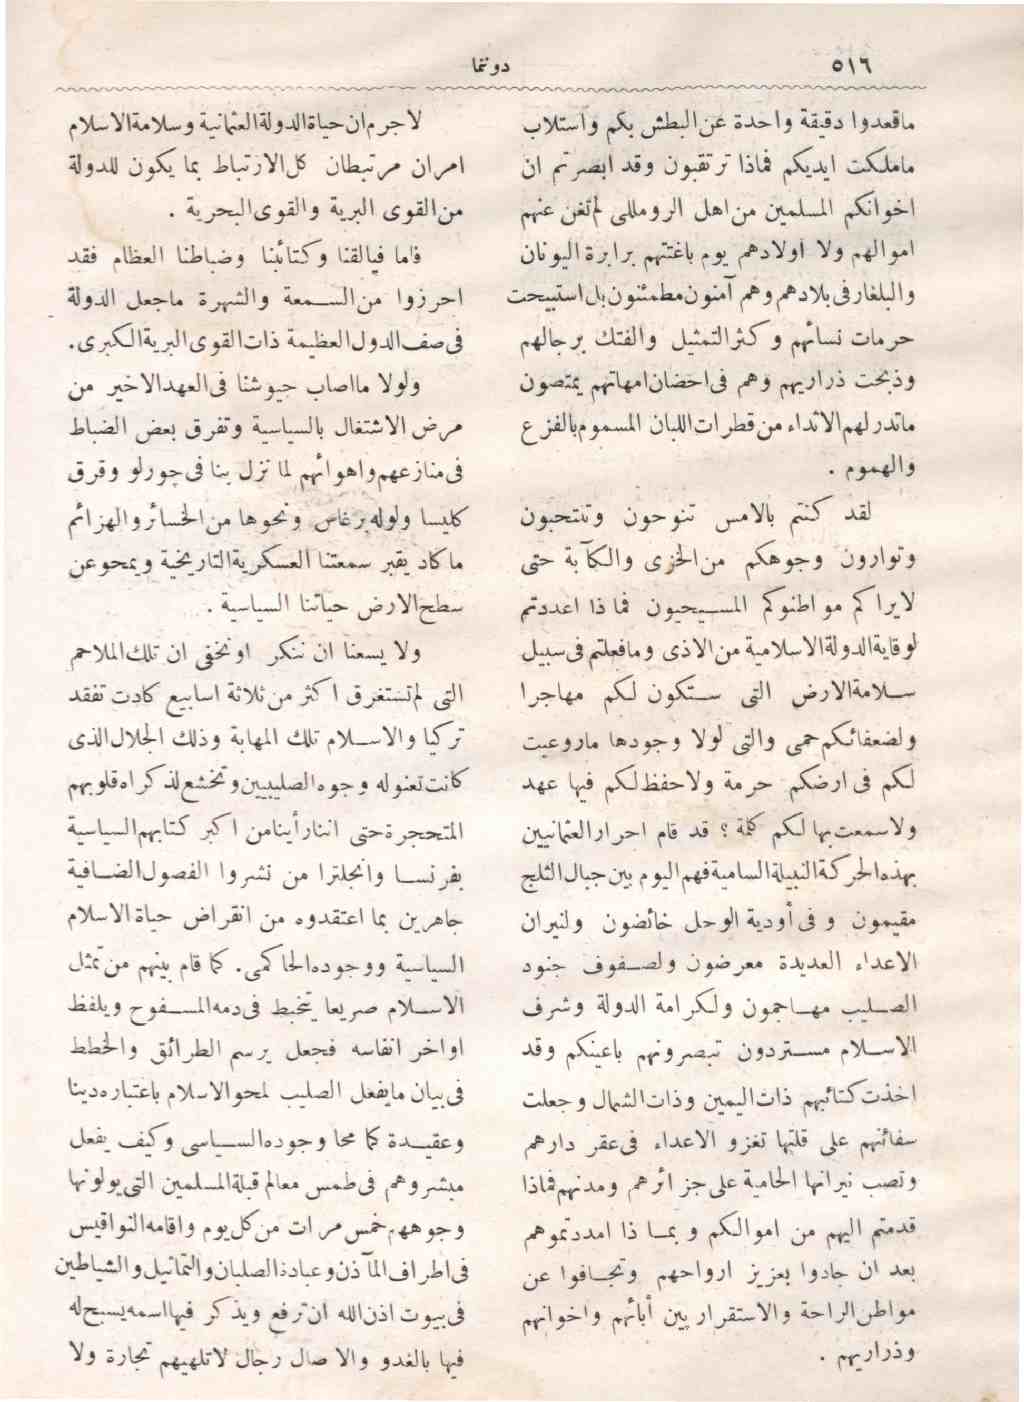 ٥١٦
دوننما
ماقعدوا دقيقة واحدة عن البطش بكم واستلاب
ماملكت ايديكم فماذا ترتقبون وقد ابصرتم ان
اخوانكم المسلمين من اهل الروماللى لم تغن عنهم
اموالهم ولا اولادهم يوم باغتتهم برابرة اليونان
والبلغار فى بلادهم وهم آمنون مطمئنون بل استبيحت
حرمات نسائهم وكثر التمثيل والفتك برجالهم
وذبحت ذراريهم وهم فى احضان امهاتهم يمتصون
ماتدر لهم الاثداء من قطرات اللبان المسموم بالفزع
والهموم .
لقد كنتم بالامس تنوحون وتنتحبون
وتوارون وجوهكم من الخزى والكآبة حتى
لايراكم مواطنوكم المسيحيون فماذا اعددتم
لوقاية الدولة الاسلامية من الاذى ومافعلتم فى سبيل
سلامة الارض التى ستكون لكم مهاجرا
ولضعفائكم حمى والتى لولا وجودها ماروعيت
لكم فى ارضكم حرمة ولاحفظ لكم فيها عهد
ولاسمعت بها لكم كلمة ؟ قد قام احرار العثمانيين
بهذه الحركة النبيلة السامية فهم اليوم بين جبال الثلج
مقيمون و فى أودية الوحل خائضون ولنيران
الاعداء العديدة معرضون ولصفوف جنود
الصليب مهاجمون ولكرامة الدولة وشرف
الاسلام مستردون تبصرونهم باعينكم وقد
اخذت كتائبهم ذات اليمين وذات الشمال وجعلت
سفائنهم على قلتها تغزو الاعداء فى عقر دارهم
وتصب نيرانها الحامية على جزائرهم ومدنهم فماذا
قدمتم اليهم من اموالكم و بماذا امددتموهم
بعد ان جادوا بعزيز ارواحهم وتجافوا عن
مواطن الراحة والاستقرار بين أبائهم واخوانهم
وذراريهم .
لاجرم ان حياة الدولة العثمانية وسلامة الاسلام
امران مرتبطان كل الارتباط بما يكون للدولة
من القوى البرية والقوى البحرية .
فاما فيالقنا وكتائبنا وضباطنا العظام فقد
احرزوا من السمعة والشهرة ماجعل الدولة
فى صف الدول العظيمة ذات القوى البرية الكبرى .
ولولا مااصاب جيوشنا فى العهد الاخير من
مرض الاشتغال بالسياسية وتفرق بعض الضباط
فى منازعهم واهوائهم لما نزل بنا فى چورلو وقرق
كليسا ولوله برغاس ونحوها من الخسائر والهزائم
ماكاد يقبر سمعتنا العسكرية التاريخية ويمحو عن
سطح الارض حياتنا السياسية .
ولا يسعنا ان ننكر اونخفى ان تلك الملاحم
التى لم تستغرق اكثر من ثلاثة اسابيع كادت تفقد
تركيا والاسلام تلك المهابة وذلك الجلال الذى
كانت تعنوله وجوه الصليبيين وتخشع لذكراه قلوبهم
المتحجرة حتى اننا رأينا من اكبر كتابهم السياسية
بفرنسا وانجلترا من نشروا الفصول الضافية
جاهرين بما اعتقدوه من انقراض حياة الاسلام
السياسية ووجوده الحاكمى . كما قام بينهم من تمثل
الاسلام صريعا يتخبط فى دمه المسفوح ويلفظ
اواخر انفاسه فجعل يرسم الطرائق والخطط
فى بيان مايفعل الصليب لمحو الاسلام باعتباره دينا
وعقيدة كما محا وجوده السياسى وكيف يفعل
مبشروهم فى طمس معالم قبلة المسلمين التى يولونها
وجوههم خمس مرات من كل يوم واقامه النواقيس
فى اطراف المآذن وعبادة الصلبان والتماثيل والشياطين
فى بيوت اذن الله ان ترفع ويذكر فيها اسمه يسبح له
فيها بالغدو والاصال رجال لاتلهيهم تجارة ولا